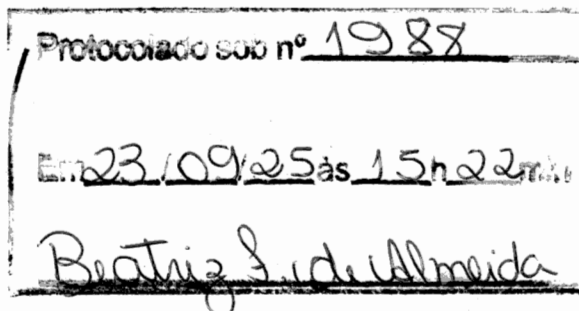 Protocolado sob nº 1988
Em 23/09/25 às 15h 22min
Beatriz L. de Almeida